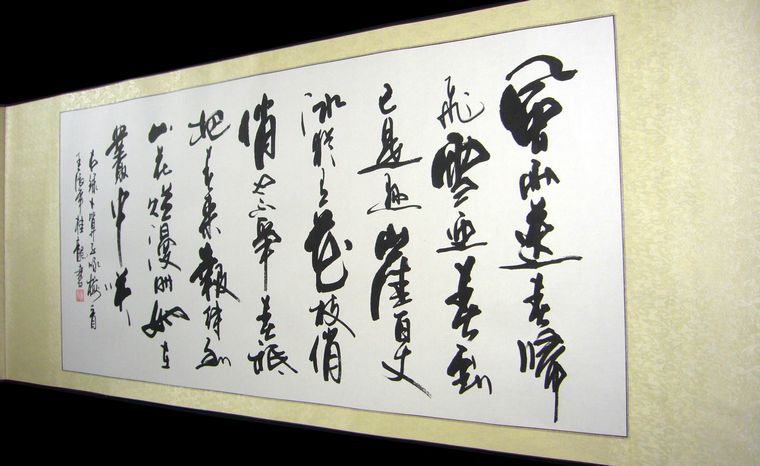 風雨送春歸
飛雪迎春到
已是懸崖百丈
冰猶有花枝俏
俏也不爭春祇
把春來報待到
山花爛漫時她在
叢中笑
卜算子咏梅
桂龍書